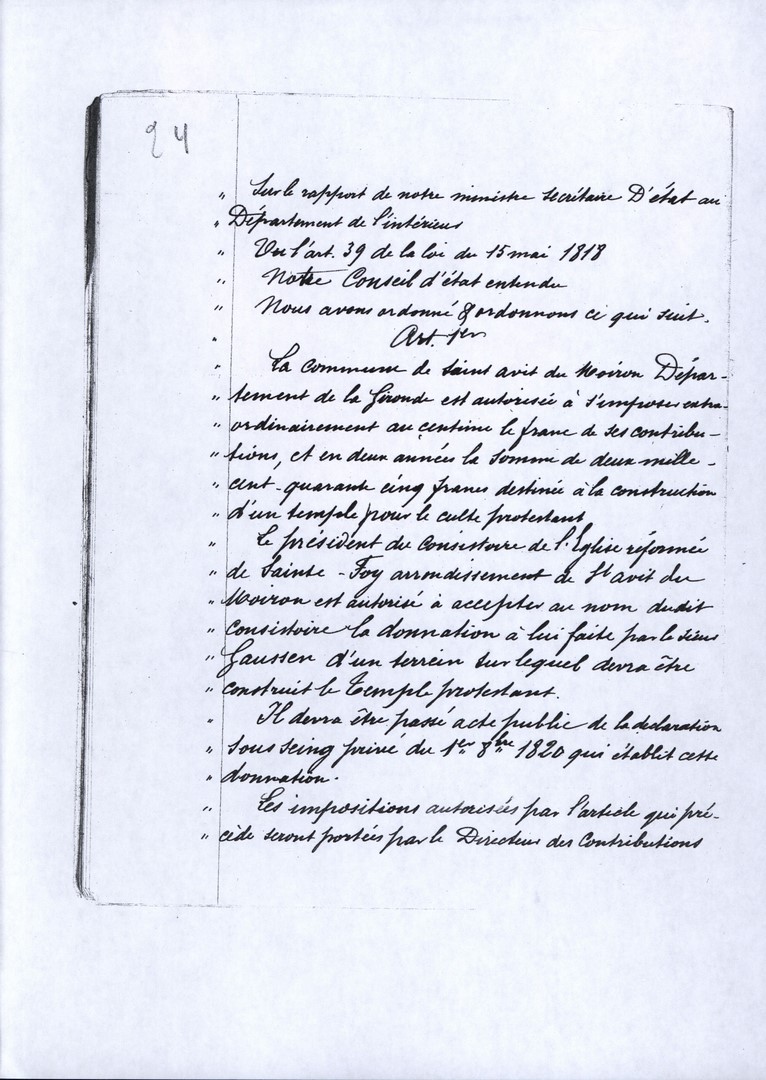 24
" Sur le rapport de notre ministre secrétaire D'état au
" Département de l'intérieur
" Vu l'art. 39 de la loi du 15 mai 1818
" Notre Conseil d'état entendu
" Nous avons ordonné & ordonnons ce qui suit.
" Art. 1er
" La commune de Saint avit du Moiron Dépar-
" tement de la Gironde est autorisée à s'imposer extra-
" ordinairement au centime le franc de ses contribu-
" tions, et en deux années la somme de deux mille-
" cent-quarante cinq francs destinée à la construction
" d'un temple pour le culte protestant
" Le président du consistoire de l'Eglise réformée
" de Sainte-Foy arrondissement de St avit du
" Moiron est autorisé à accepter au nom dudit
" consistoire la donnation à lui faite par le sieur
" Gaussen d'un terrein sur lequel devra être
" construit le Temple protestant.
" Il devra être passé acte public de la declaration
" sous seing privé du 1er 8bre 1820 qui établit cette
" donnation.
" Les impositions autorisées par l'article qui pré-
" cède seront portées par le Directeur des Contributions